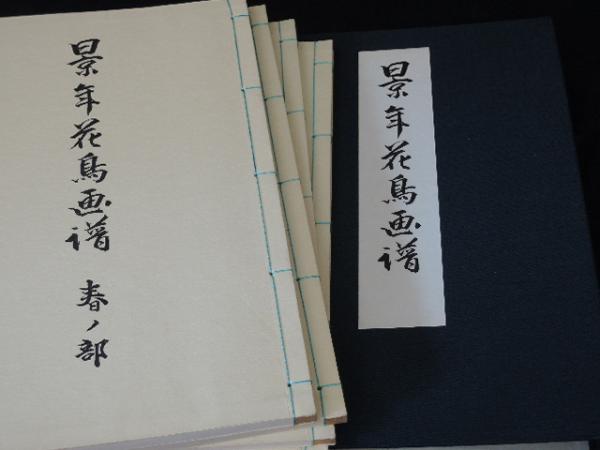 景年花鳥画譜 春ノ部
景年花鳥画譜